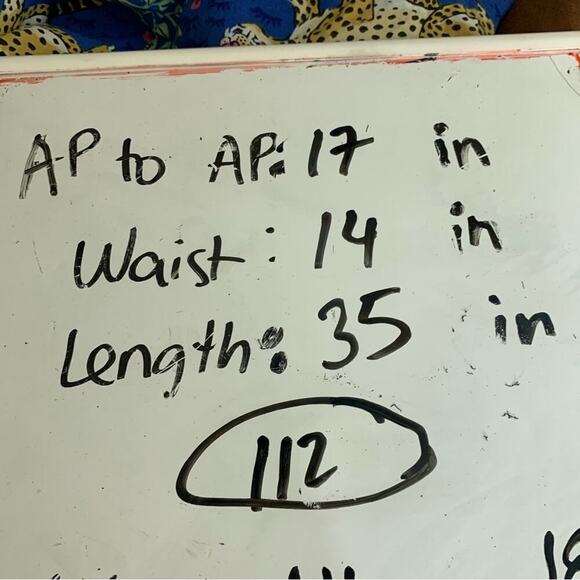 AP to AP: 17 in
Waist: 14 in
Length: 35 in
112